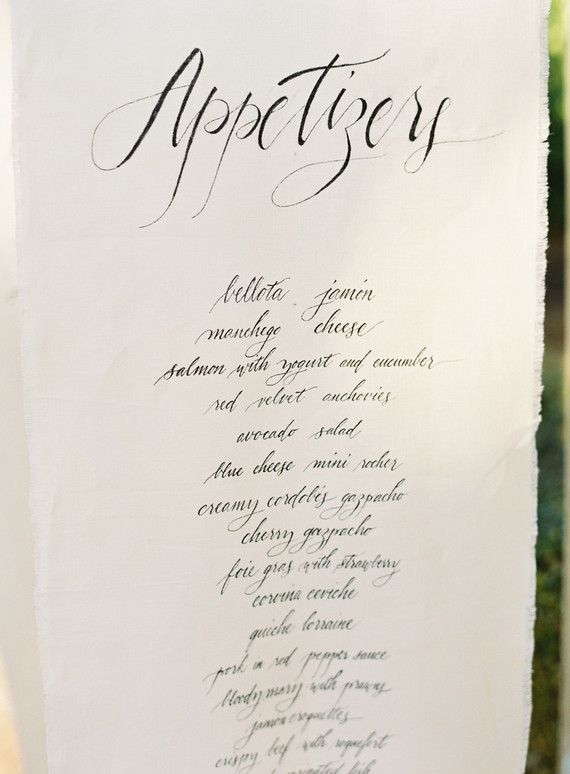 Appetizers
bellota jamón
manchego cheese
salmon with yogurt and cucumber
red velvet anchovies
avocado salad
blue cheese mini rocher
creamy cordobés gazpacho
cherry gazpacho
foie gras with strawberry
corvina ceviche
quiche lorraine
pork in red pepper sauce
bloody mary with prawns
jamón croquettes
crispy beef with roquefort
fish